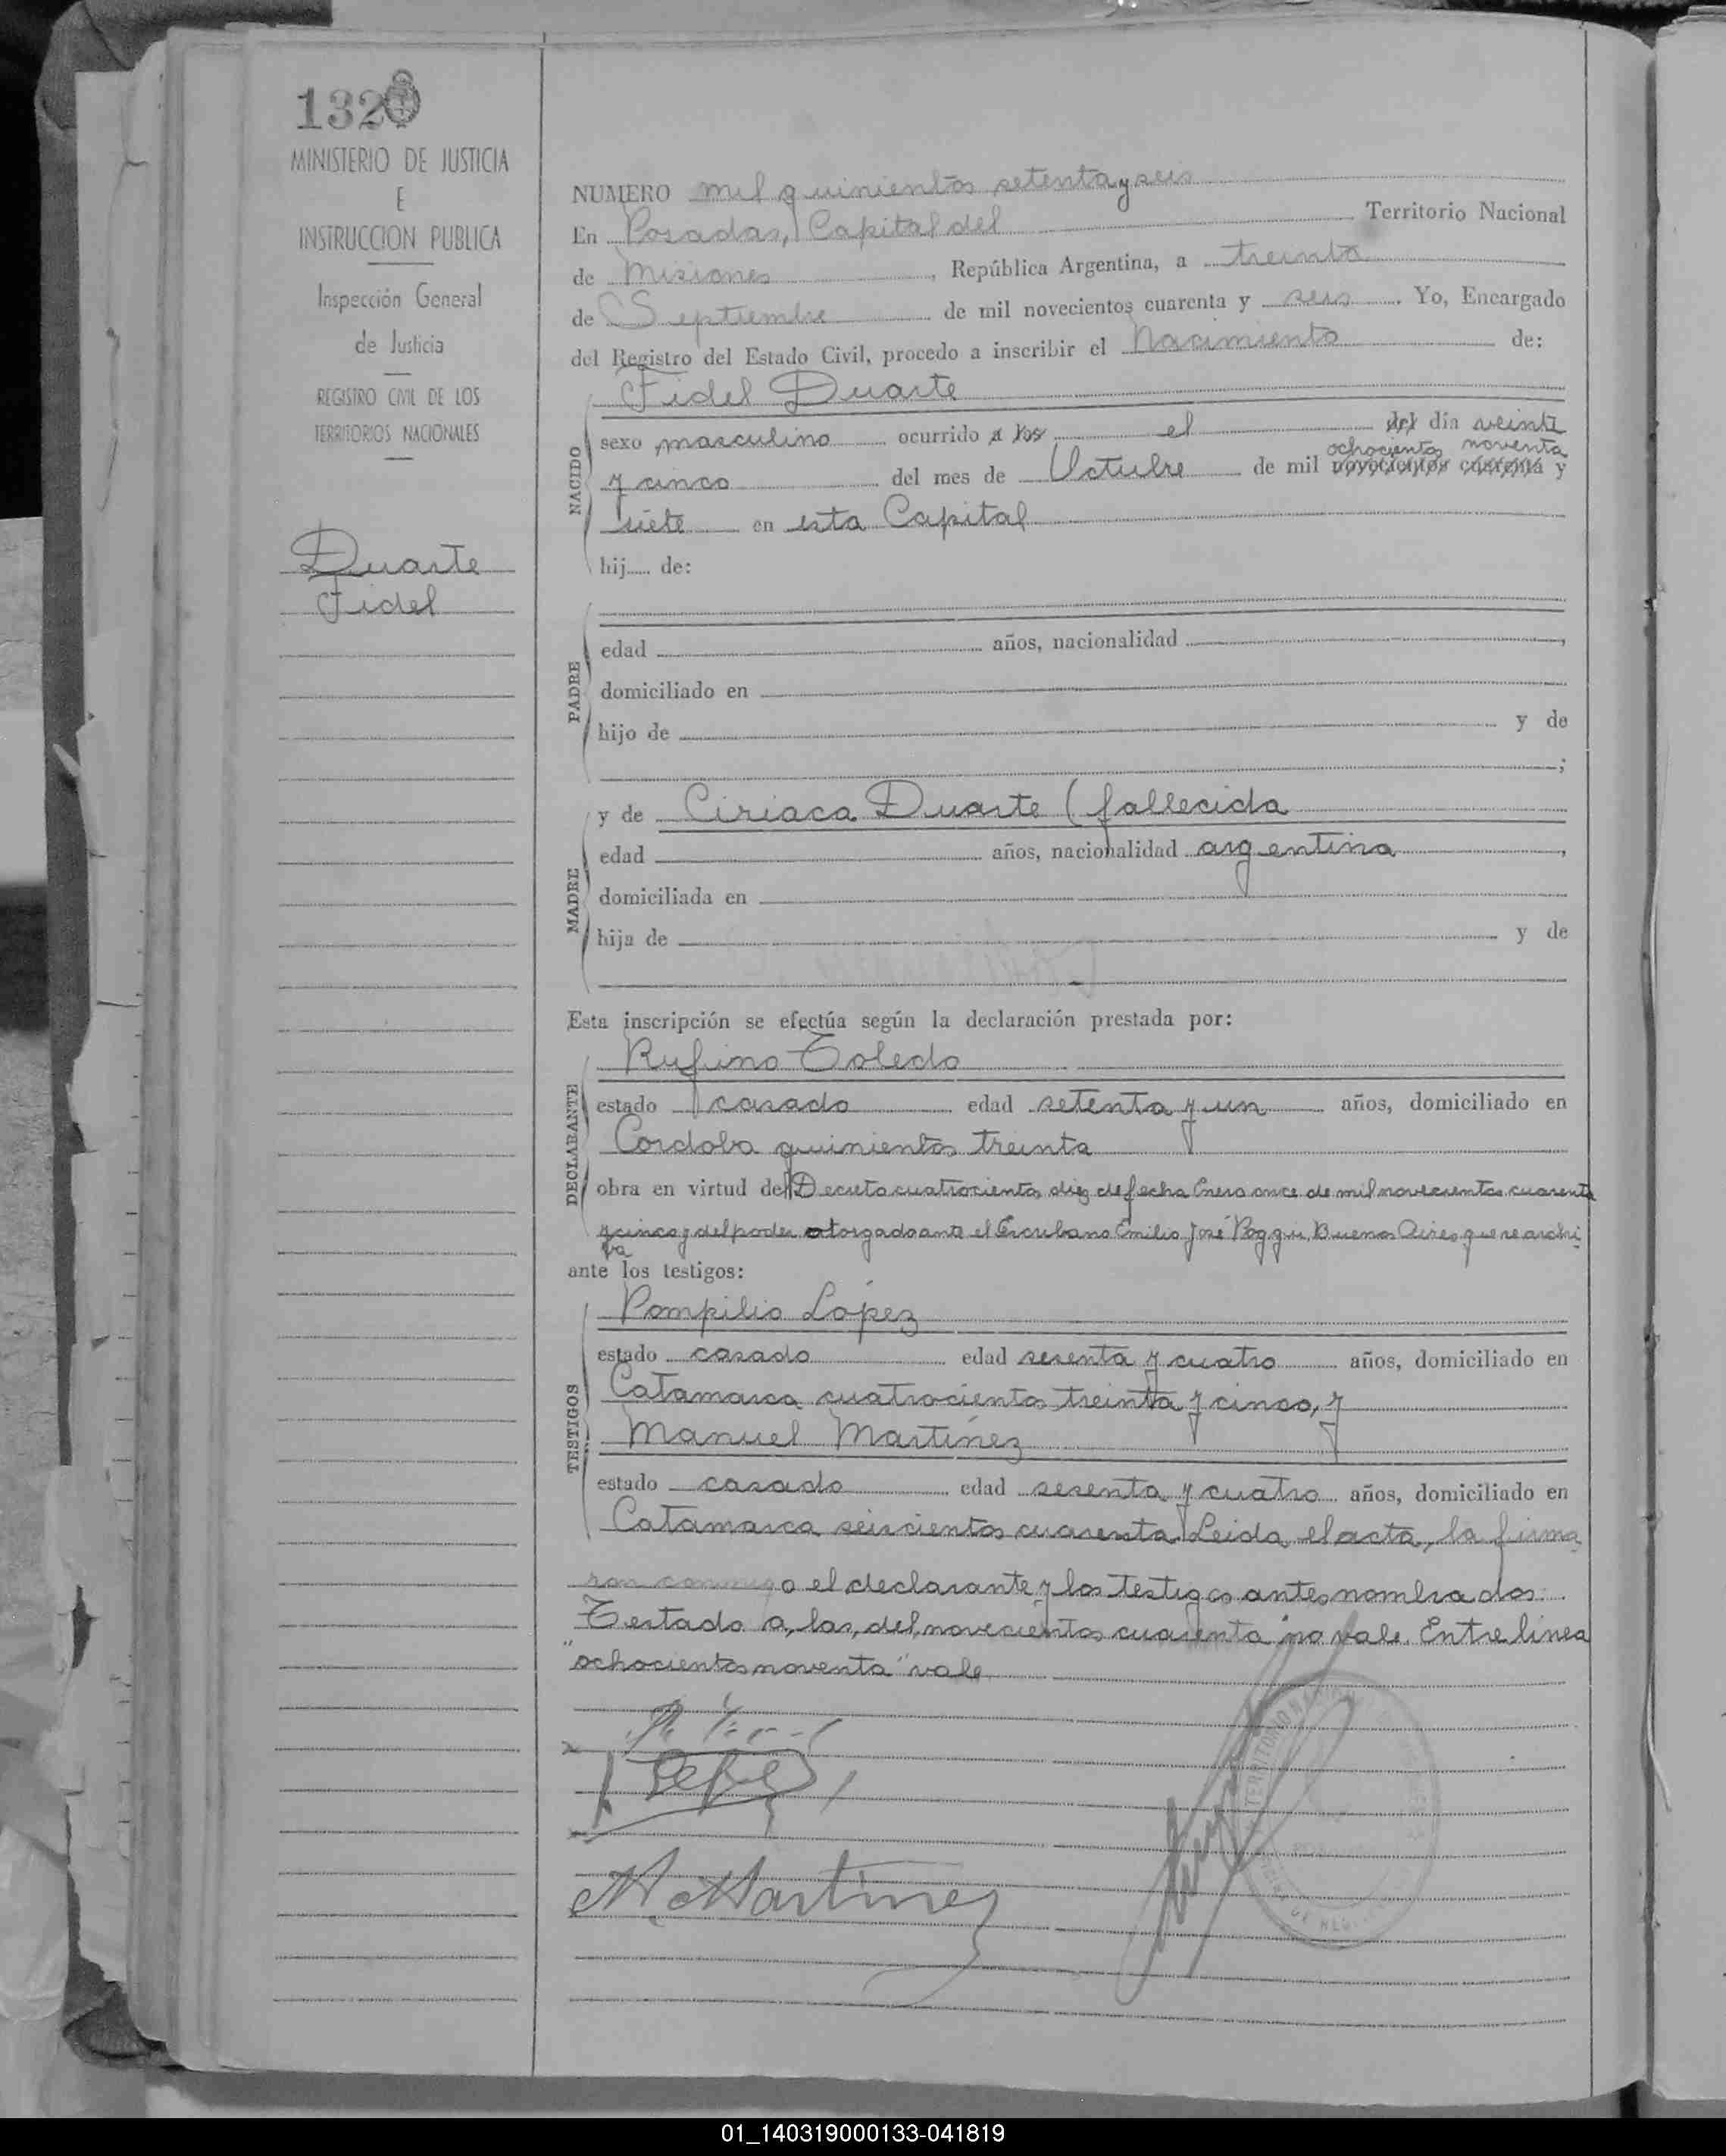 132
MINISTERIO DE JUSTICIA
E
INSTRUCCION PUBLICA
Inspección General
de Justicia
REGISTRO CIVIL DE LOS
TERRITORIOS NACIONALES
Duarte
Fidel
NUMERO mil quinientos setenta y seis
En Posadas, Capital del Territorio Nacional
de Misiones, República Argentina, a treinta
de Septiembre de mil novecientos cuarenta y seis. Yo, Encargado
del Registro del Estado Civil, procedo a inscribir el Nacimiento de:
Fidel Duarte
NACIDO
sexo masculino ocurrido a las el del día veinte
ochocientos noventa
y cinco del mes de Octubre de mil novecientos cuarenta y
siete en esta Capital
hij de:
PADRE
edad años, nacionalidad ,
domiciliado en
hijo de y de
;
y de Ciriaca Duarte (fallecida
MADRE
edad años, nacionalidad argentina ,
domiciliada en
hija de y de
Esta inscripción se efectúa según la declaración prestada por:
Rufino Toledo
DECLARANTE
estado casado edad setenta y un años, domiciliado en
Cordoba quinientos treinta
obra en virtud del Decreto cuatrocientos diez de fecha Enero once de mil novecientos cuarenta
y cinco y del poder otorgado ante el Escribano Emilio José Poggi, Buenos Aires que se archi
va
ante los testigos:
Pompilio López
TESTIGOS
estado casado edad sesenta y cuatro años, domiciliado en
Catamarca cuatrocientos treinta y cinco, y
Manuel Martínez
estado casado edad sesenta y cuatro años, domiciliado en
Catamarca seiscientos cuarenta. Leida el acta, la firma
ron conmigo el declarante y los testigos antes nombrados.
Testado a, las, del, novecientos cuarenta no vale. Entre linea
"ochocientos noventa" vale
M. Martínez
TERRITORIO
01_140319000133-041819